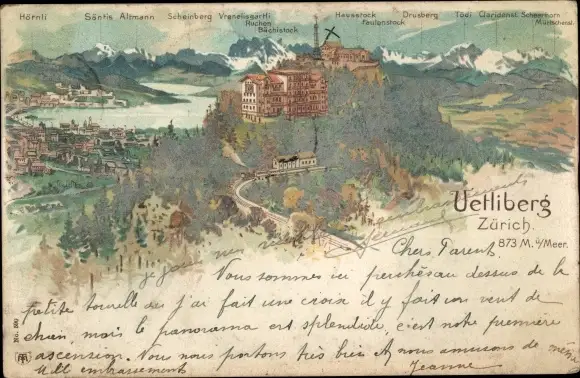 Hörnli Säntis Altmann Scheinberg Vrenelisgärtli Hausstock Drusberg Tödi Claridenst. Scheerhorn
Ruchen Faulenstock Mürtschenst.
Bächistock
Uetliberg
Zürich.
873 M. ü/Meer.
je vous embrassements
Jeanne
Chers Parents
Vous sommes ici perchés au dessus de la
petite tourelle où j'ai fait une croix il y fait un vent de
chien, mais le panorama est splendide, c'est notre première
ascension. Nous nous portons très bien et nous amusons de même
Mill embrassements Jeanne
No. 190